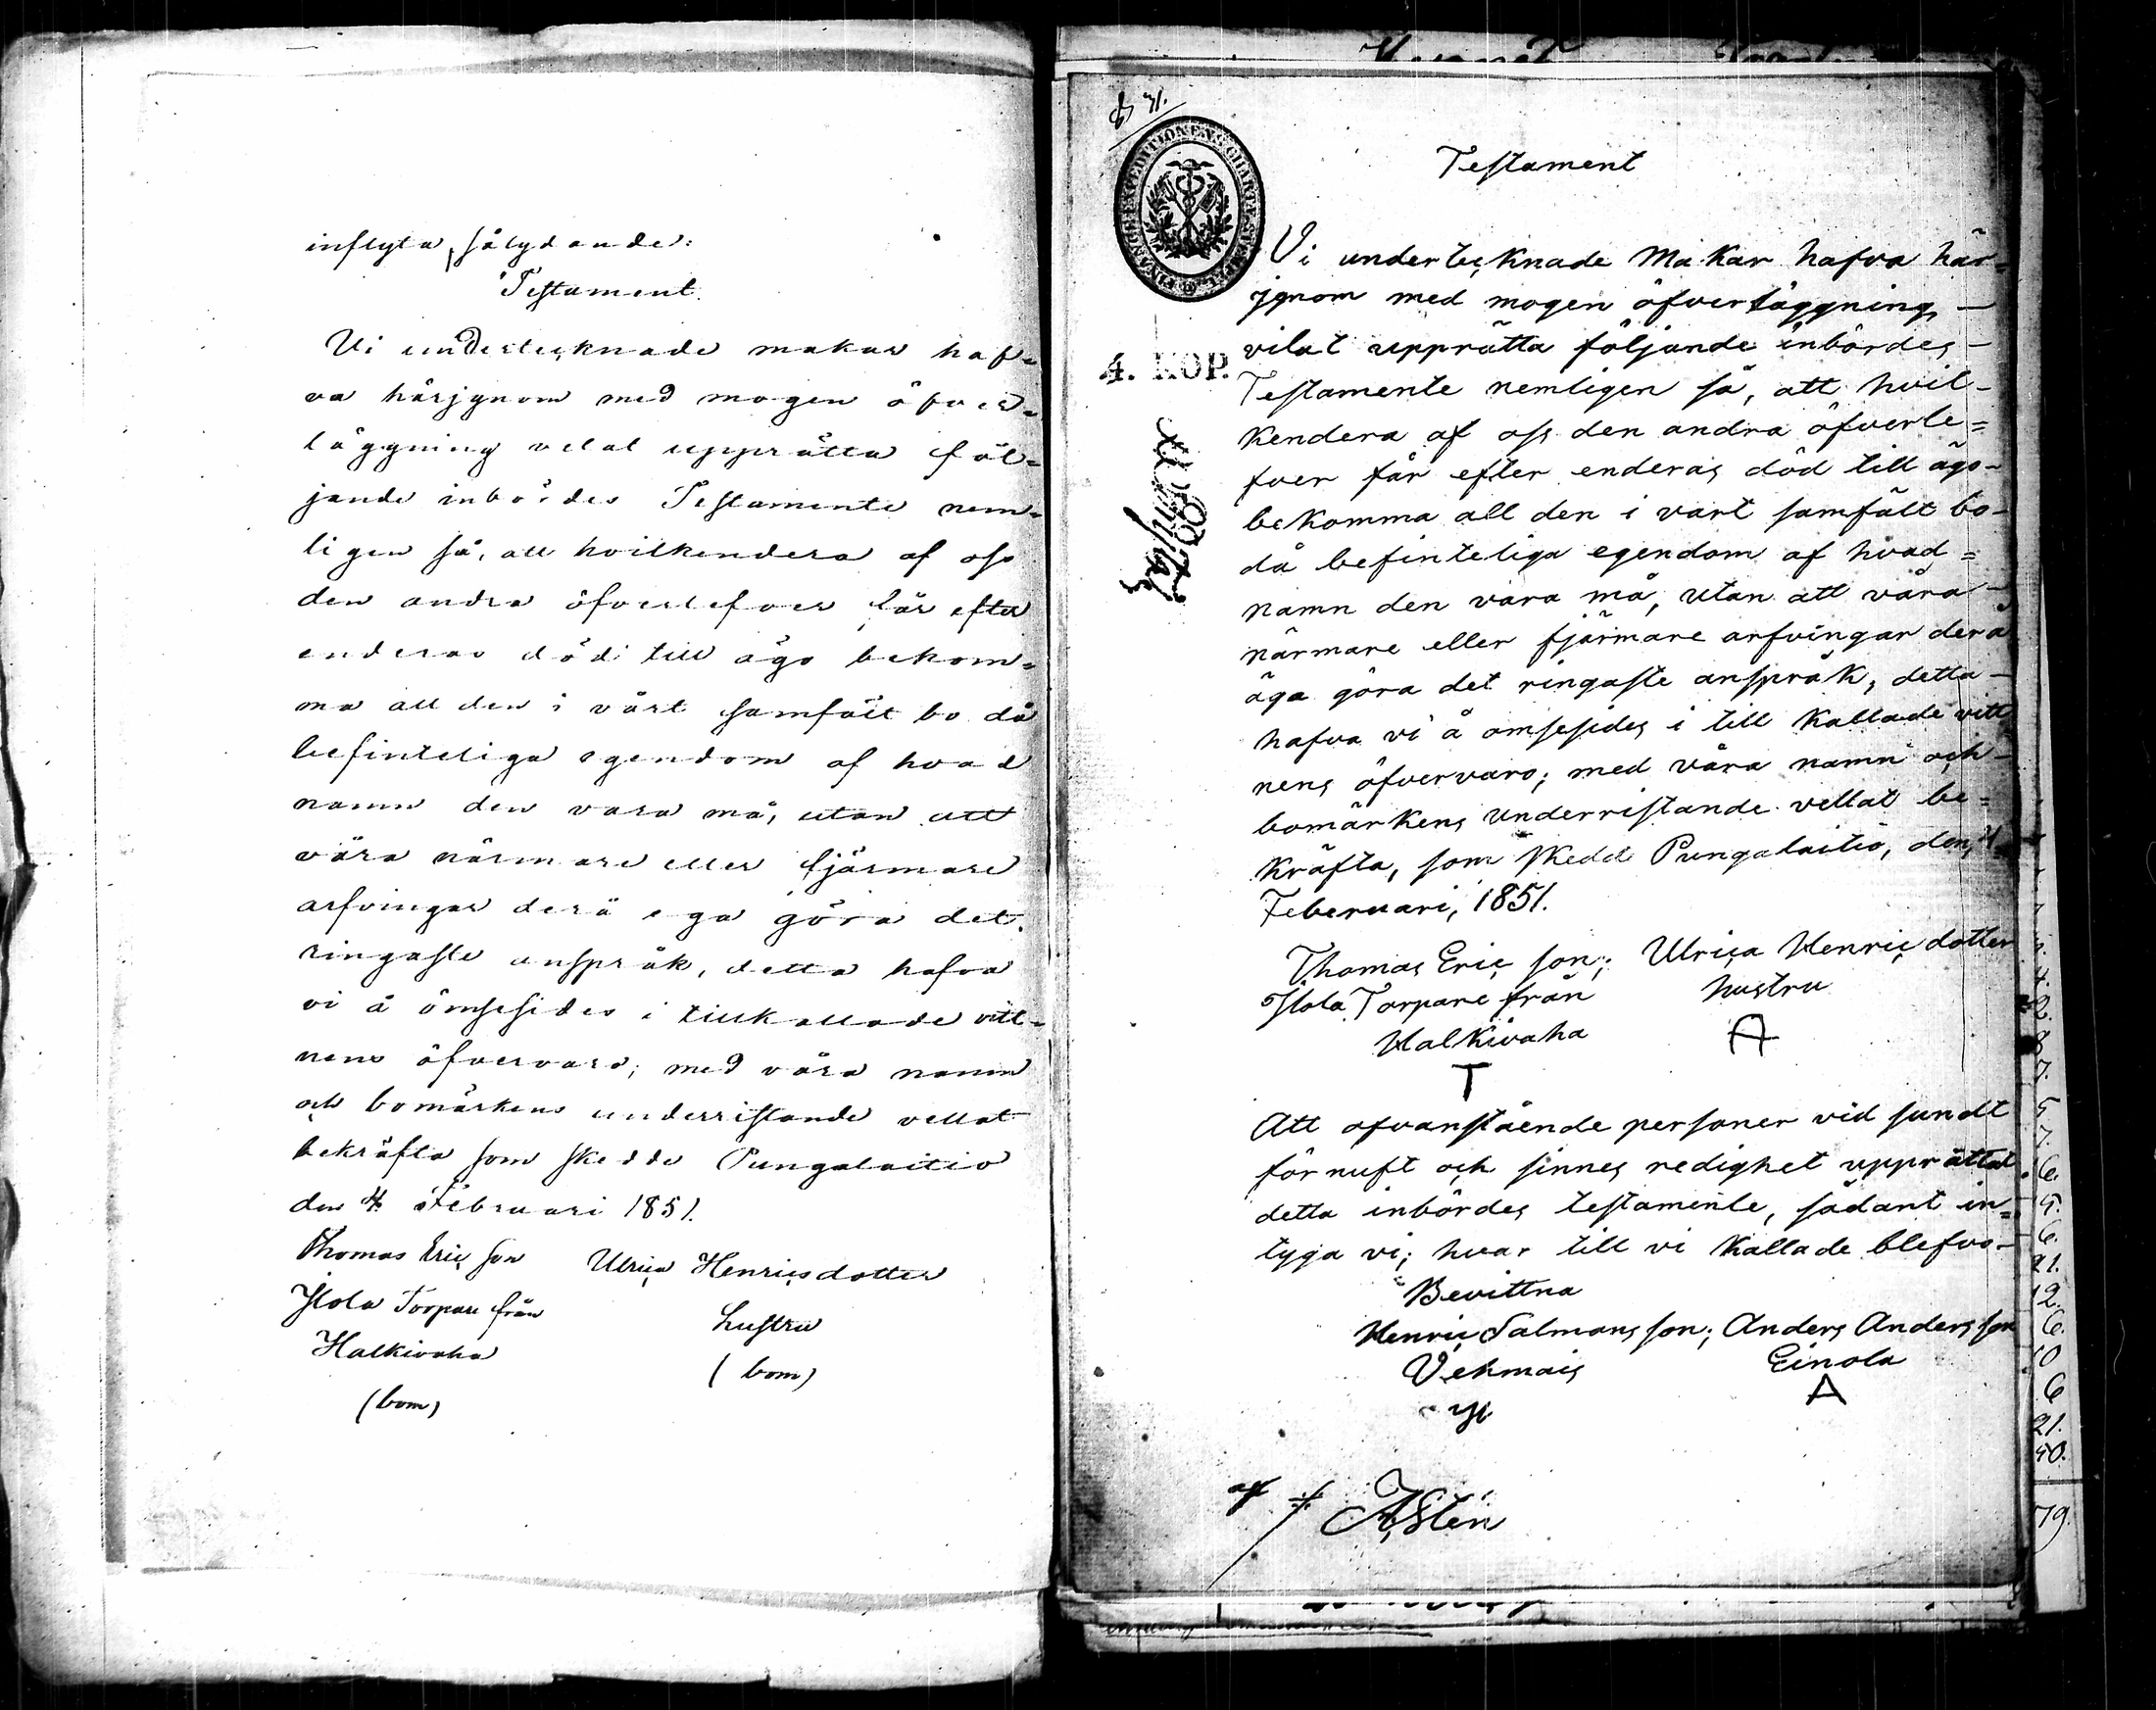 inflyta, sålydande:
Testament.
Vi undertecknade makar haf=
va härjgnom med mogen öfver=
läggning velat upprätta föl=
jande inbördes Testamente nem=
ligen så, att hvilkendera af oss
den andra öfverlefver får efter
enderas död till ägo bekom=
ma all den i vårt samfält bo då
befinteliga egendom af hvad
namn den vara må, utan att
våra närmare eller fjärmare
arfvingar derå ega göra det
ringaste anspråk, detta hafva
vi å ömsesides i tillkallade vitt=
nens öfvervaro; med våra namn
och bomärkens underristande vellat
bekräfta som skedde Pungalaitio
den 4 Februari 1851.
Thomas Eric son Ulrica Henricsdotter
Jlola Torpare från hustru
Halkivaha (bom)
(bom)
Testament
Vi undertecknade Makar hafva här=
jgnom med mogen öfverläggning —
vilat upprätta följande inbördes —
4. KOP.
Testamente nemligen så, att hvil-
kendera af oss den andra öfverle=
fver får efter enderas död till ägo-
bekomma all den i vårt samfält bo-
då befinteliga egendom af hvad =
namn den vara må, utan att våra —
närmare eller fjärmare arfvingar derå
äga göra det ringaste anspråk, detta —
hafva vi å omsesides i till kallade vitt
nens öfvervaro; med våra namn och —
bomärkens underristande vellat be=
kräfta, som skedde Pungalaitio, den, 4
Feberuari, 1851.
Thomas Eric son; Ulrica Henric dotter
Jlola Torpare från hustru
Halkivaha A
T
Att ofvanstående personer vid sundt
förnuft och sinnes redighet upprättat
detta inbördes testamente, sådant in=
tyga vi; hvar till vi kallade blefvo —
Bevittna
Henric Salmons son; Anders Anders son
Vehmais Einola
A